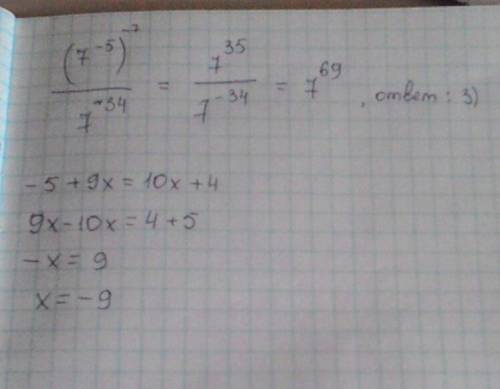 (7^-5)^-7 / 7^-34 = 7^35 / 7^-34 = 7^69, ответ: 3)
-5 + 9x = 10x + 4
9x - 10x = 4 + 5
-x = 9
x = -9